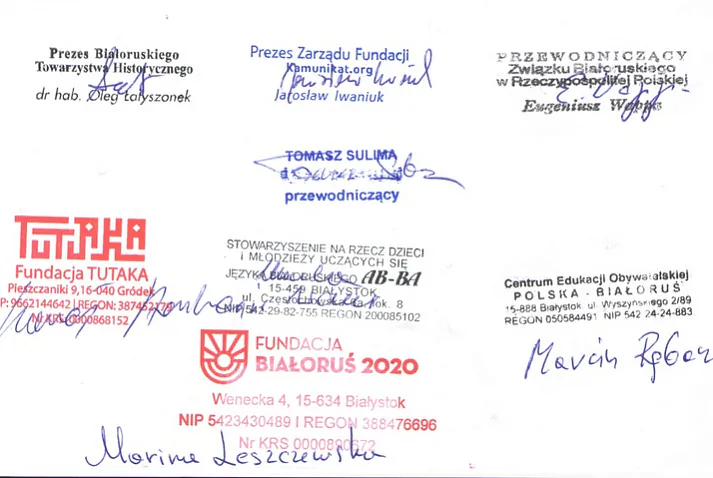 Prezes Białoruskiego
Towarzystwa Historycznego
dr hab. Oleg Łatyszonek
Prezes Zarządu Fundacji
Kamunikat.org
Jarosław Iwaniuk
PRZEWODNICZĄCY
Związku Białoruskiego
w Rzeczypospolitej Polskiej
Eugeniusz Wappa
TOMASZ SULIMA
przewodniczący
TUTAKA
Fundacja TUTAKA
Pieszczaniki 9,16-040 Gródek
P: 9662144642 | REGON: 387452170
Nr KRS 0000868152
STOWARZYSZENIE NA RZECZ DZIECI
I MŁODZIEŻY UCZĄCYCH SIĘ
JĘZYKA BIAŁORUSKIEGO AB-BA
15-459 BIAŁYSTOK
ul. Częstochowska lok. 8
NIP 542-29-82-755 REGON 200085102
Centrum Edukacji Obywatelskiej
POLSKA - BIAŁORUŚ
15-888 Białystok ul. Wyszyńskiego 2/89
REGON 050584491 NIP 542 24-24-883
Marcin Rębacz
FUNDACJA
BIAŁORUŚ 2020
Wenecka 4, 15-634 Białystok
NIP 5423430489 I REGON 388476696
Nr KRS 0000890672
Marina Leszczewska